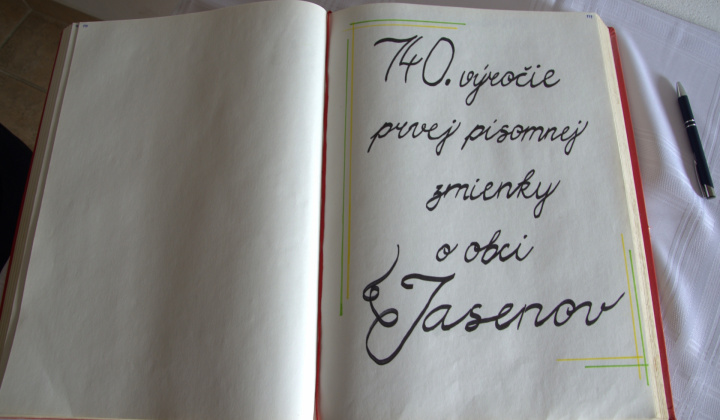 740. výročie
prvej písomnej
zmienky
o obci
Jasenov